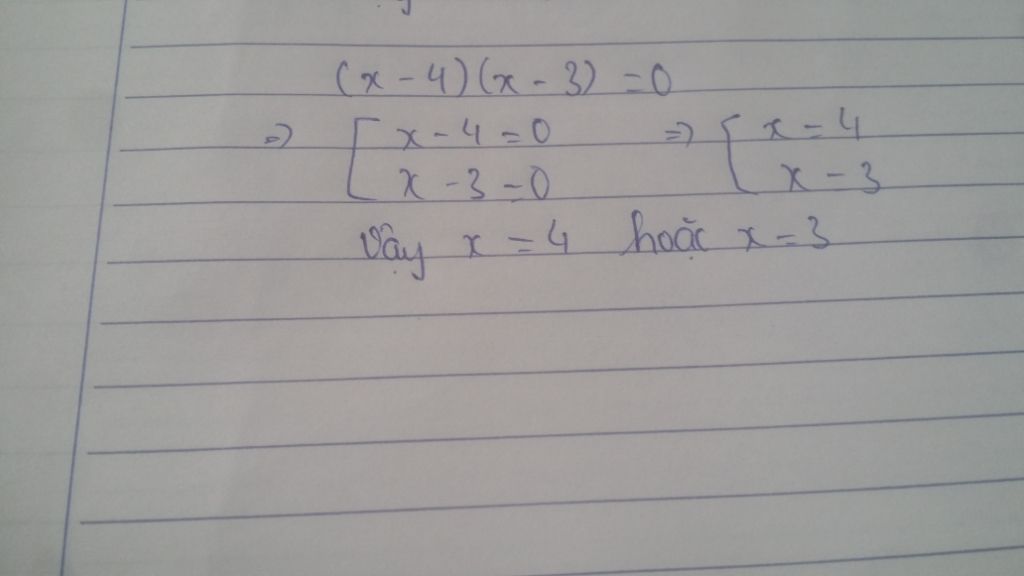 (x - 4)(x - 3) = 0
⇒ [ x - 4 = 0 ⇒ [ x = 4
x - 3 = 0 x = 3
Vậy x = 4 hoặc x = 3